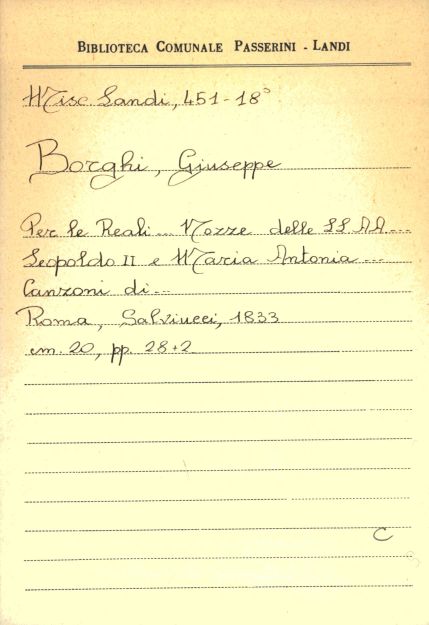 BIBLIOTECA COMUNALE PASSERINI - LANDI
Misc. Landi, 451-18°
Borghi, Giuseppe
Per le Reali... Nozze delle LL AA...
Leopoldo II e Maria Antonia...
Canzoni di...
Roma, Salviucci, 1833
cm. 20, pp. 28+2
C